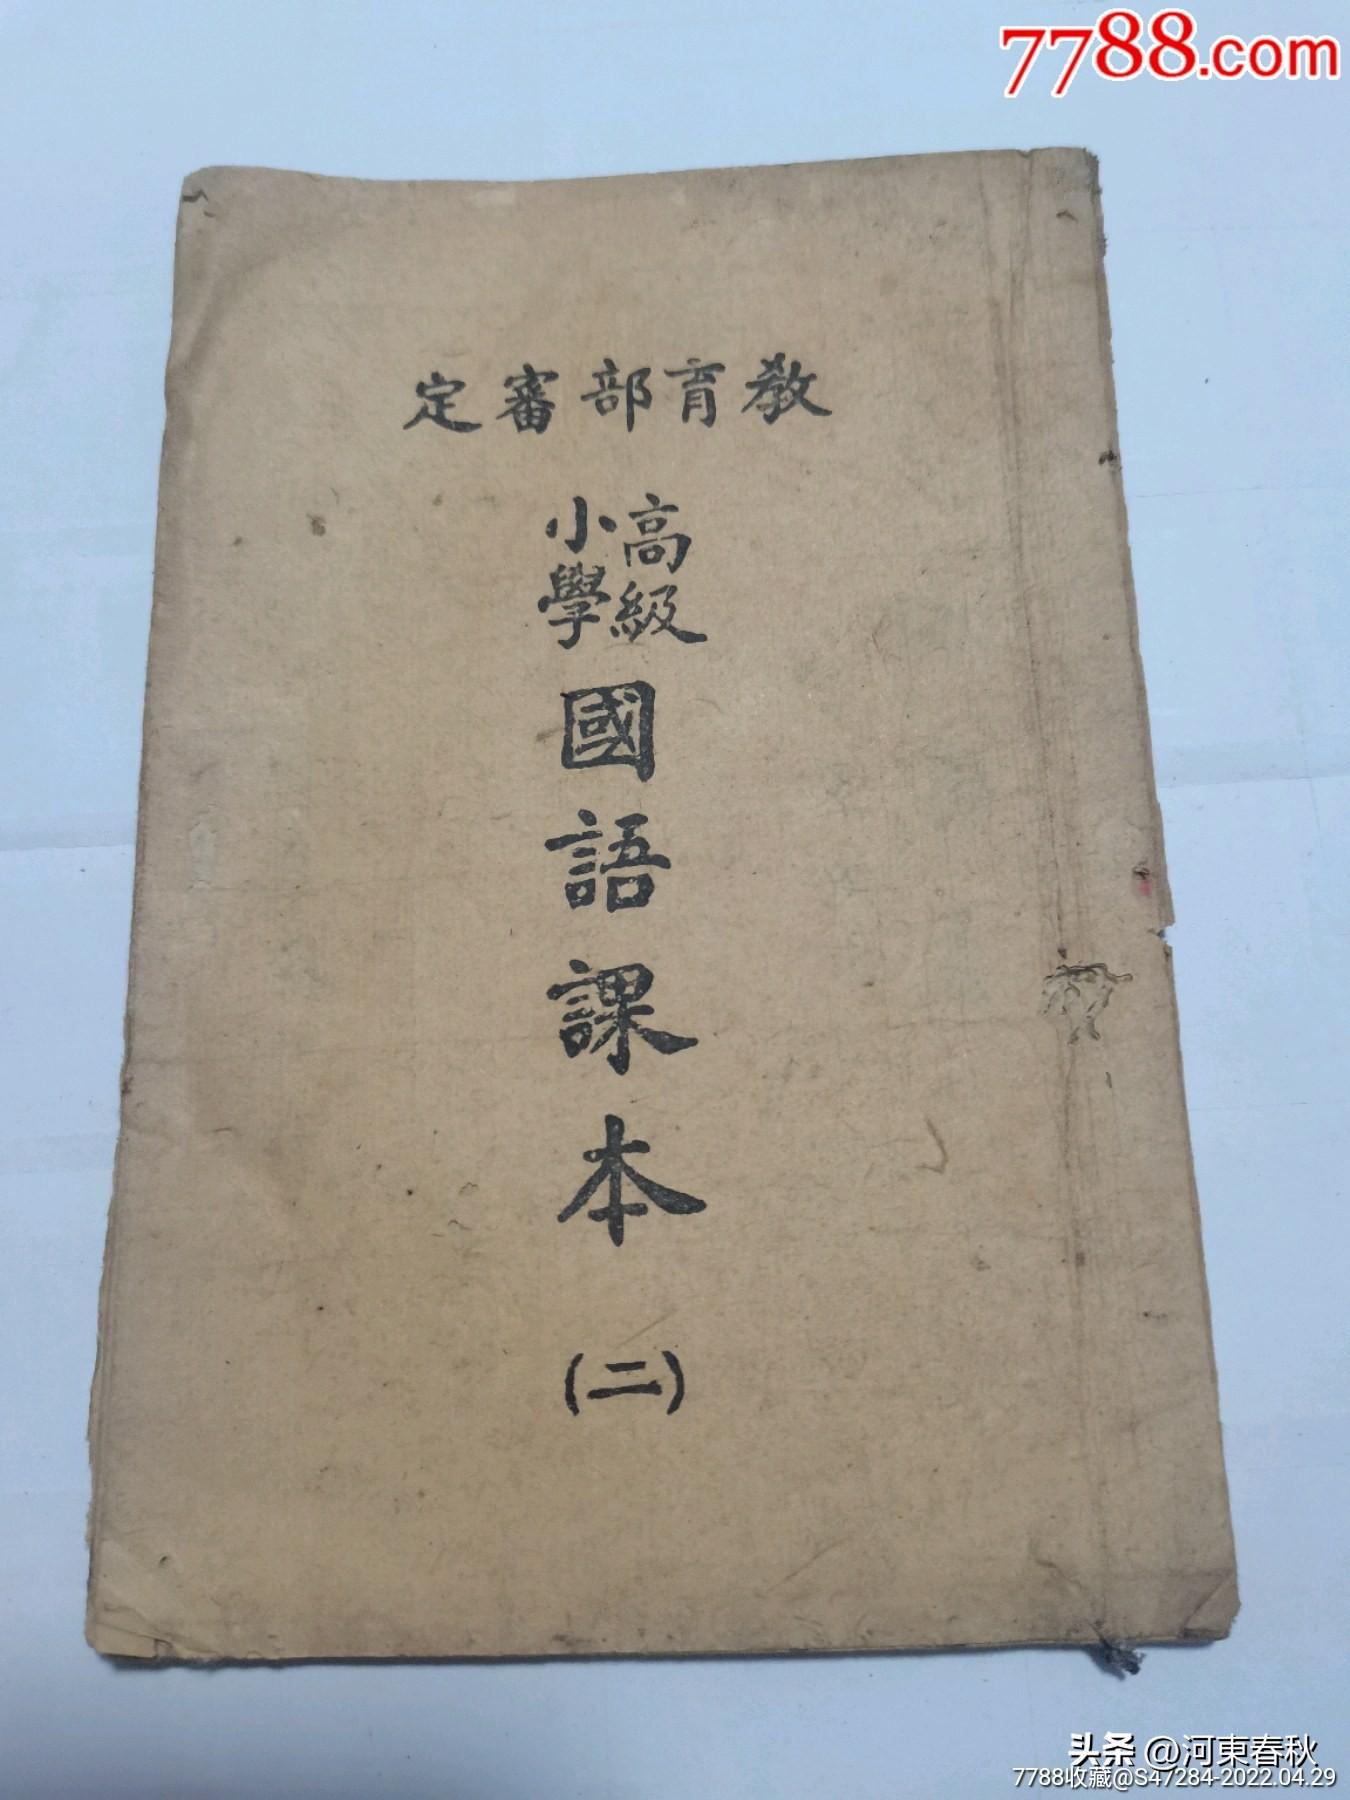 7788.com
教育部審定
高級
小學
國語課本
(二)
头条 @河東春秋
7788收藏@S47284-2022.04.29